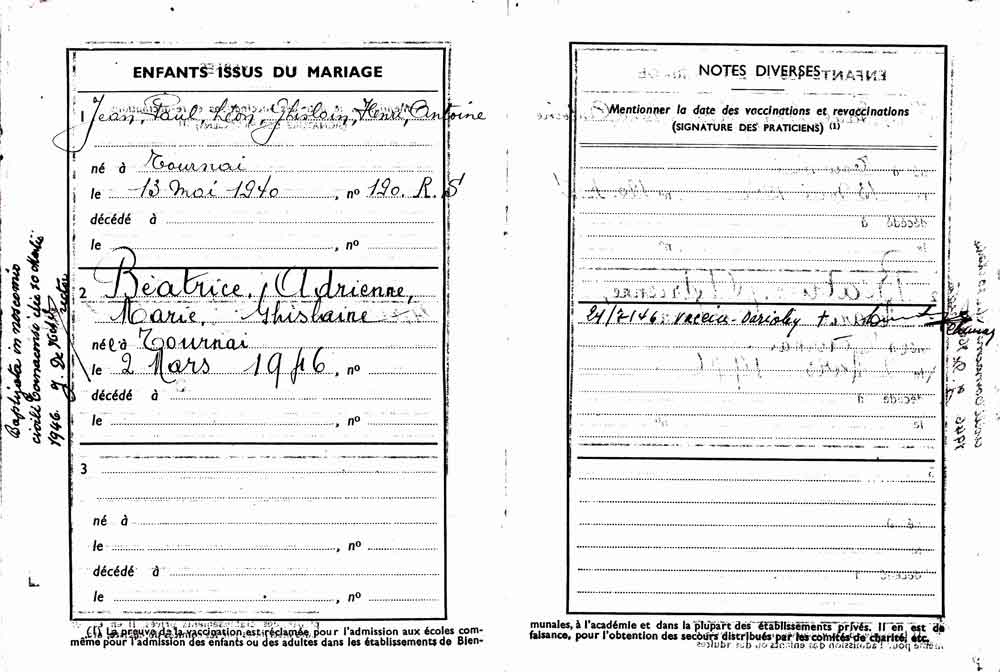 ENFANTS ISSUS DU MARIAGE
1 Jean, Paul, Léon, Ghislain, Henri, Antoine
né à Tournai
le 13 Mai 1940, nº 120. R. S
décédé à
le , nº
2 Béatrice, Adrienne,
Marie, Ghislaine
née à Tournai
le 2 Mars 1946, nº
décédé à
le , nº
3
né à
le , nº
décédé à
le , nº
(1) La preuve de la vaccination est réclamée pour l'admission aux écoles com-
même pour l'admission des enfants ou des adultes dans les établissements de Bien-
civili
1946.
NOTES DIVERSES
Mentionner la date des vaccinations et revaccinations
(SIGNATURE DES PRATICIENS) (1)
24/7/46 vaccin
munales, à l'académie et dans la plupart des établissements privés. Il en est de
faisance, pour l'obtention des secours distribués par les comités de charité, etc.